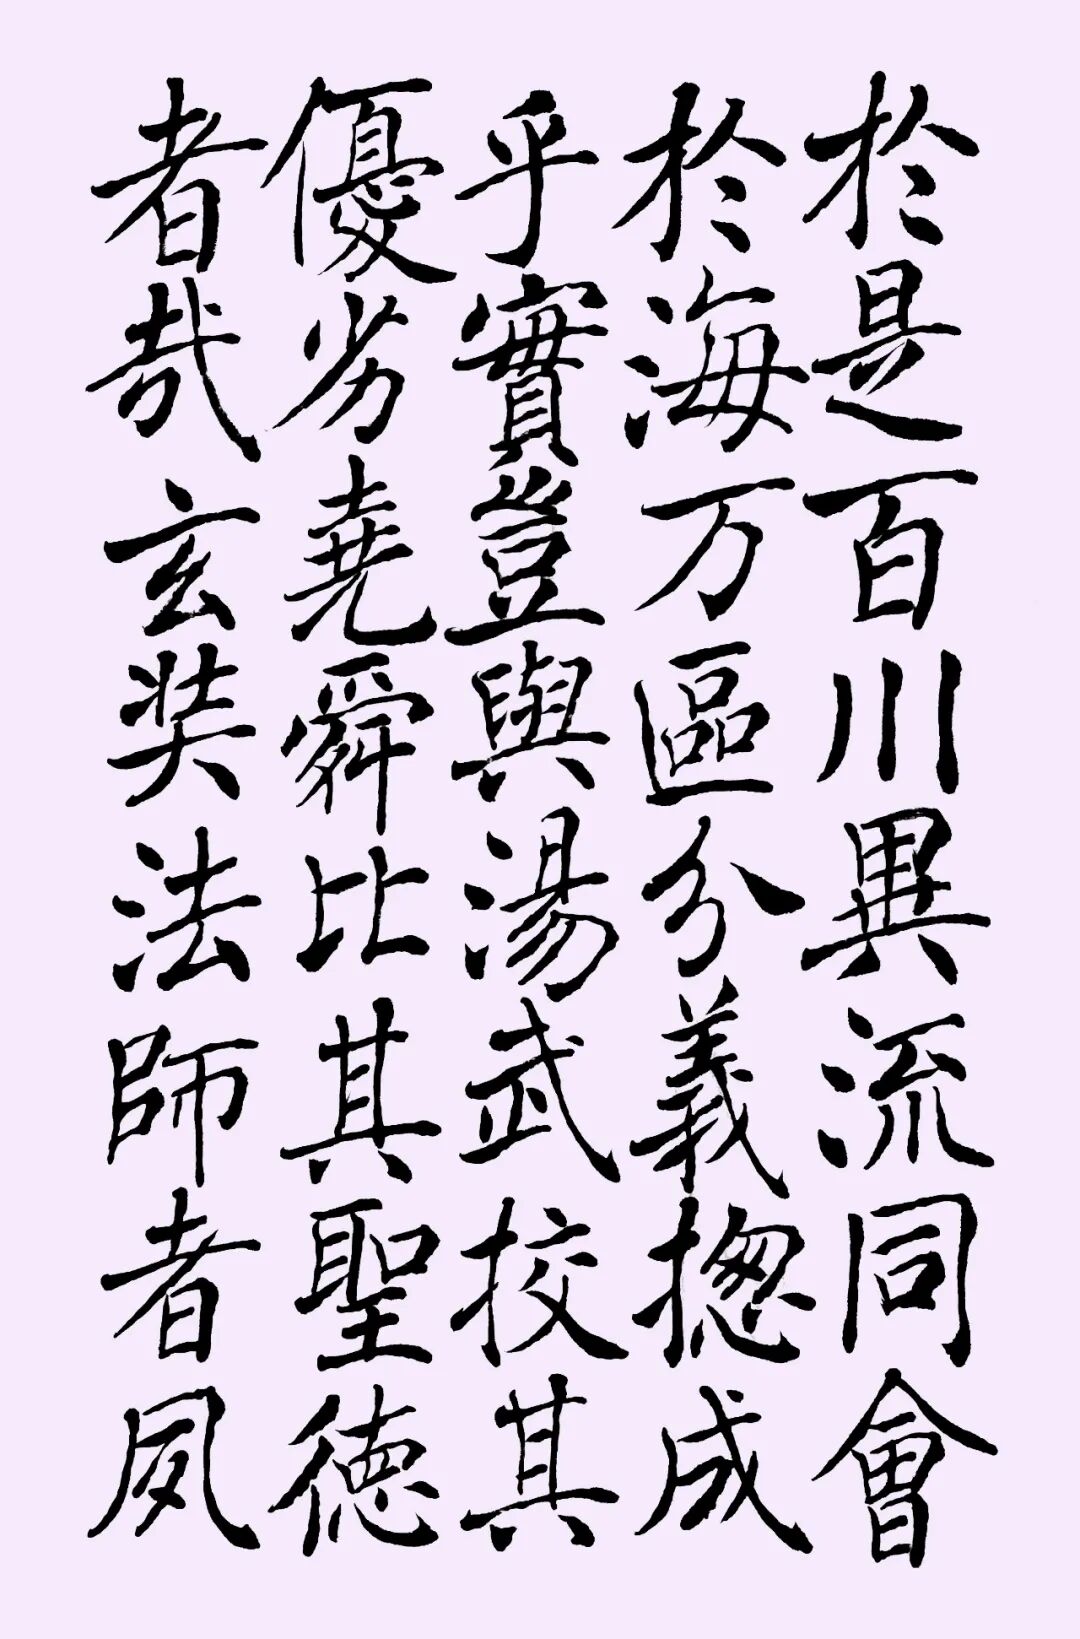 於是百川異流同會
於海万區分義揔成
乎實豈與湯武挍其
優劣堯舜比其聖德
者哉玄奘法師者夙